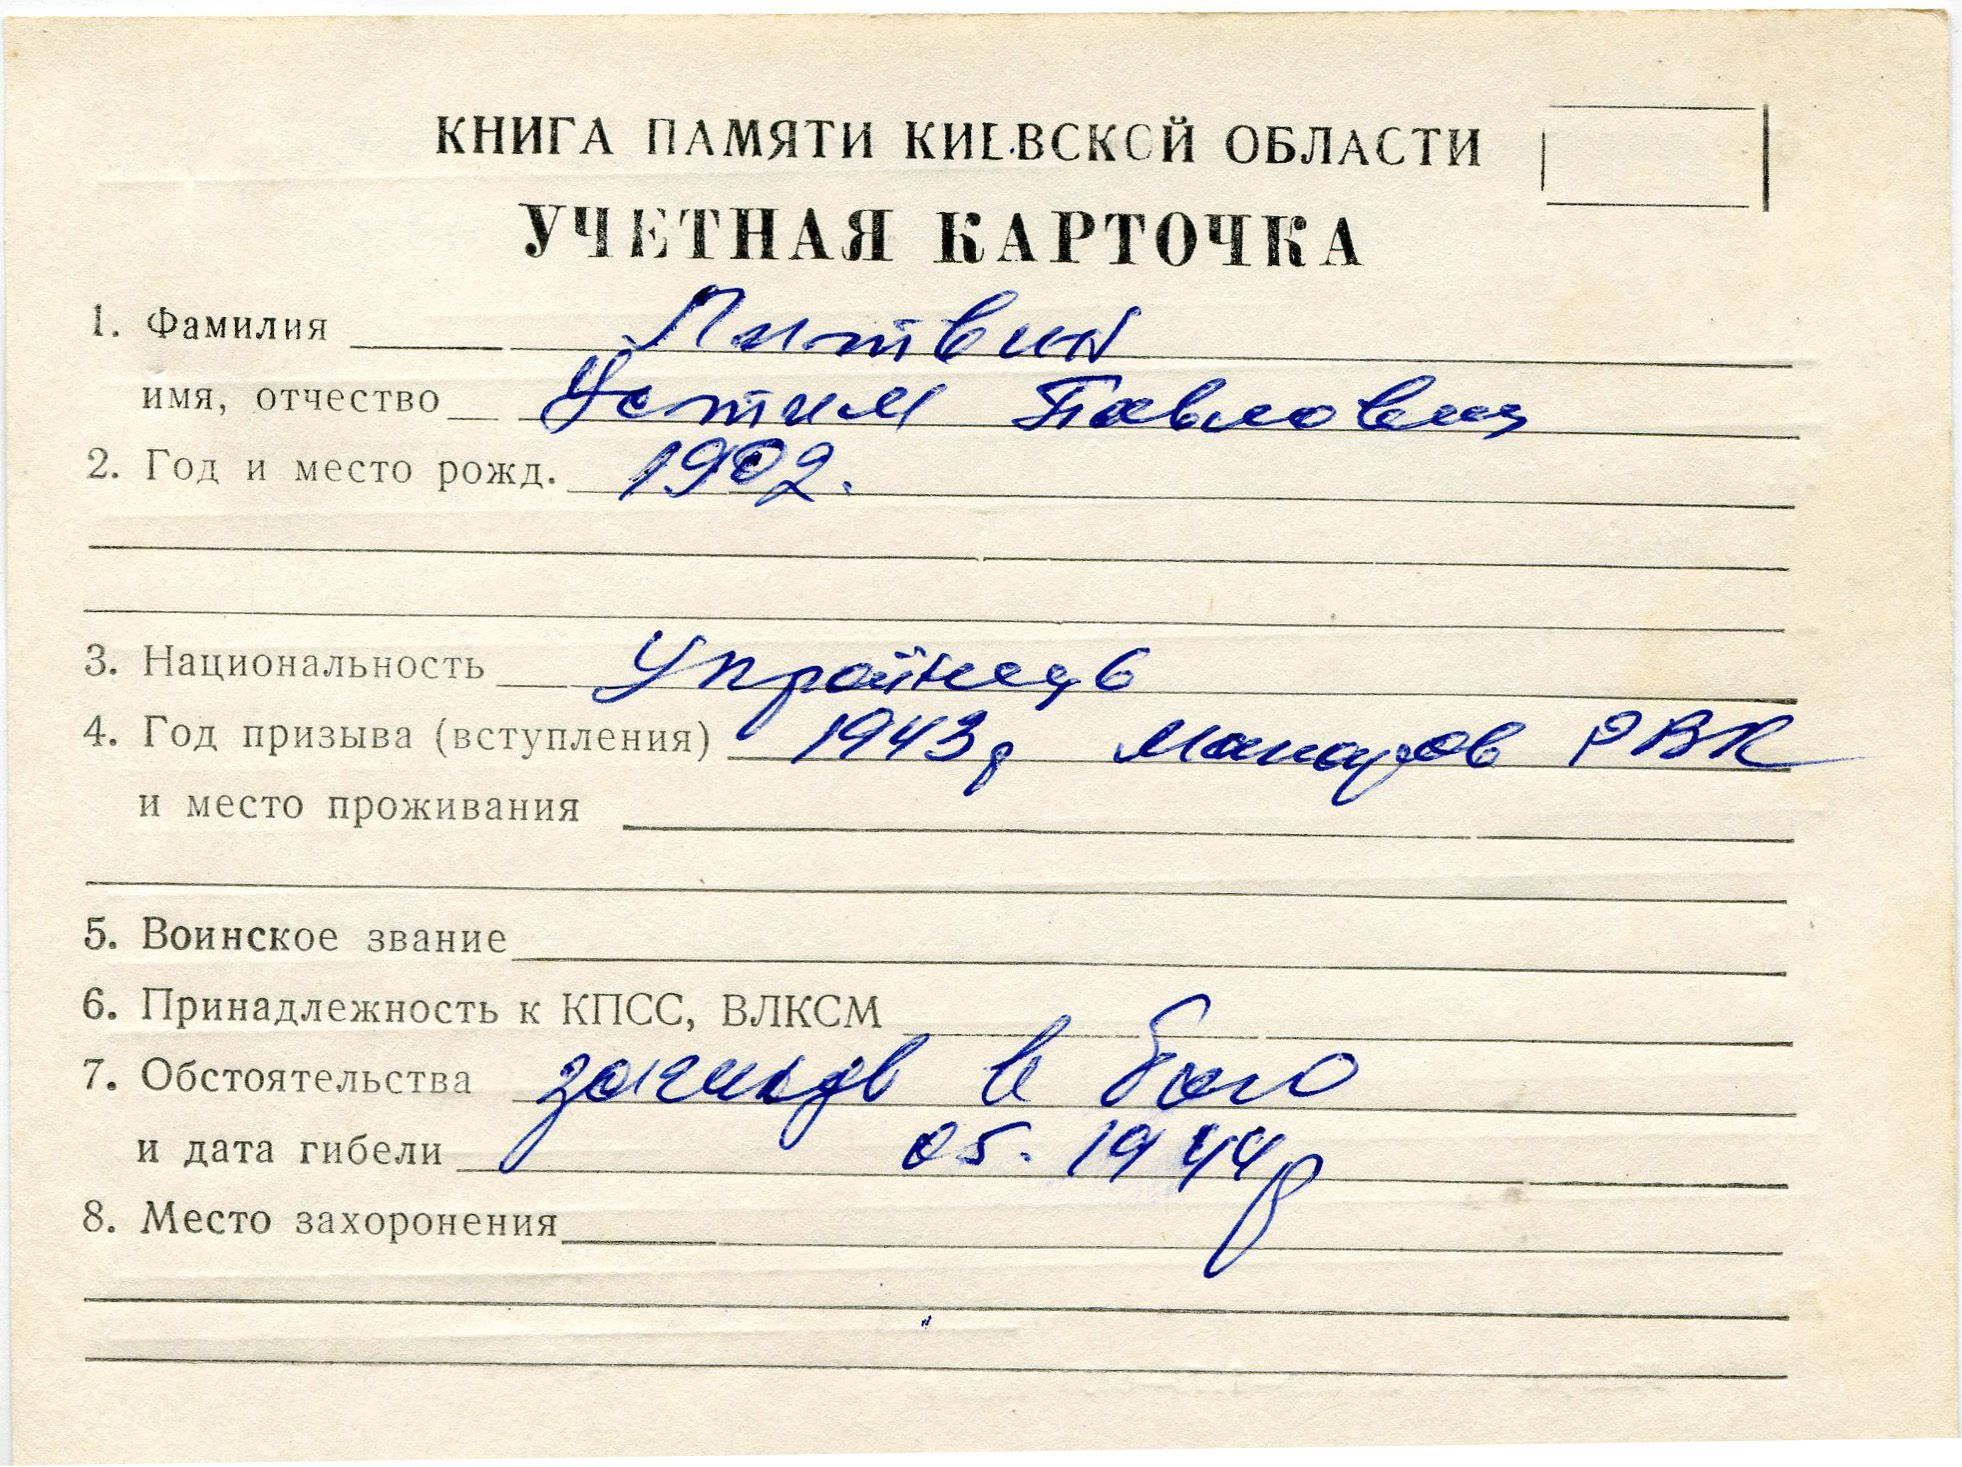 КНИГА ПАМЯТИ КИЕВСКОЙ ОБЛАСТИ
УЧЕТНАЯ КАРТОЧКА
1. Фамилия Литвин
имя, отчество Устим Павлович
2. Год и место рожд. 1902.
3. Национальность Украйнець
4. Год призыва (вступления) 1943р Макаров РВК
и место проживания
5. Воинское звание
6. Принадлежность к КПСС, ВЛКСМ
7. Обстоятельства загинув в бою
и дата гибели 05. 1944р
8. Место захоронения